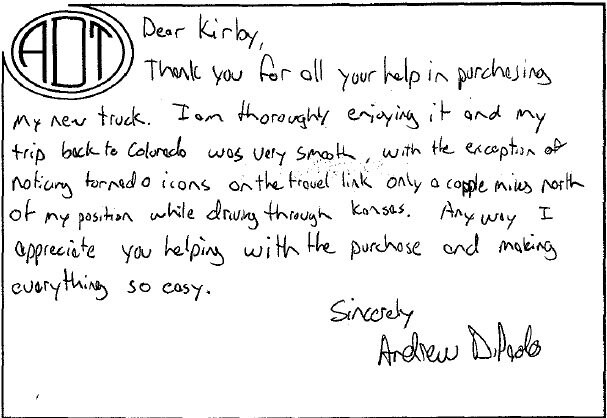 ADT
Dear Kirby,
Thank you for all your help in purchasing
my new truck. I am thoroughly enjoying it and my
trip back to Colorado was very smooth, with the exception of
noticing tornado icons on the travel link only a couple miles north
of my position while driving through Kansas. Any way I
appreciate you helping with the purchase and making
everything so easy.
Sincerely
Andrew DiPaolo